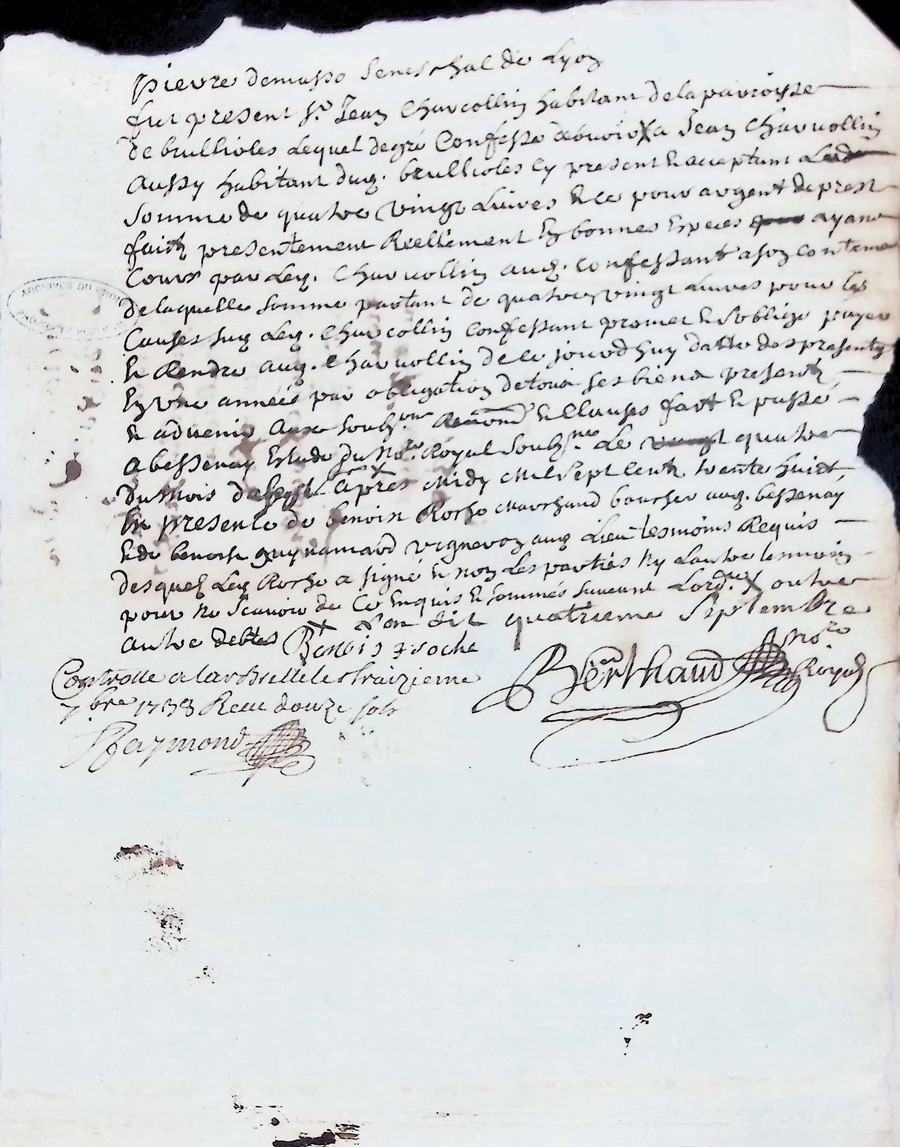 pierre demasso seneschal de Lyon
fut present Sr. Jean Charvollin habitant de la parroisse
de brullioles Lequel de gré Confesse debvoir a Jean Charvollin
aussy habitant duq. brullioles cy present et acceptant
somme de quatre vingt Livres et ce pour argent de prest
faict presentement Reellement En bonnes Especes ayant
Cours par Leq. Charvollin auq. confessant a son contentement
de laquelle somme partant de quatre vingt Livres pour les
Causes susq Leq. Charvollin Confessant promet et soblige payer
et Rendre auq. Charvollin de ce jourdhuy datte des presentes
En une année par obligation de tous ses biens presents
et advenir aux soubons Renonons et Clauses fait et passé
a bessenay Estude du Nore. Royal soubsne. Le quatre
du mois de sept. apres midy mil sept cent trente huict
En presence de benoist Roche marchand boucher auq. bessenay
et de benoist guynamard vigneron auq Lieu tesmoins Requis
desquels Leq Roche a signé et non Les parties ny Lautre tesmoin
pour ne scavoir de Ce Enquis et sommés suivant Lordce X
autre debtes X Lon dit quatrieme septembre
Benois Roche
Controlle a Larbrelle le traizieme
7bre 1738 Receu douze sols
Berthaud Nore Royal
Raymond
ARCHIVES DU RHONE